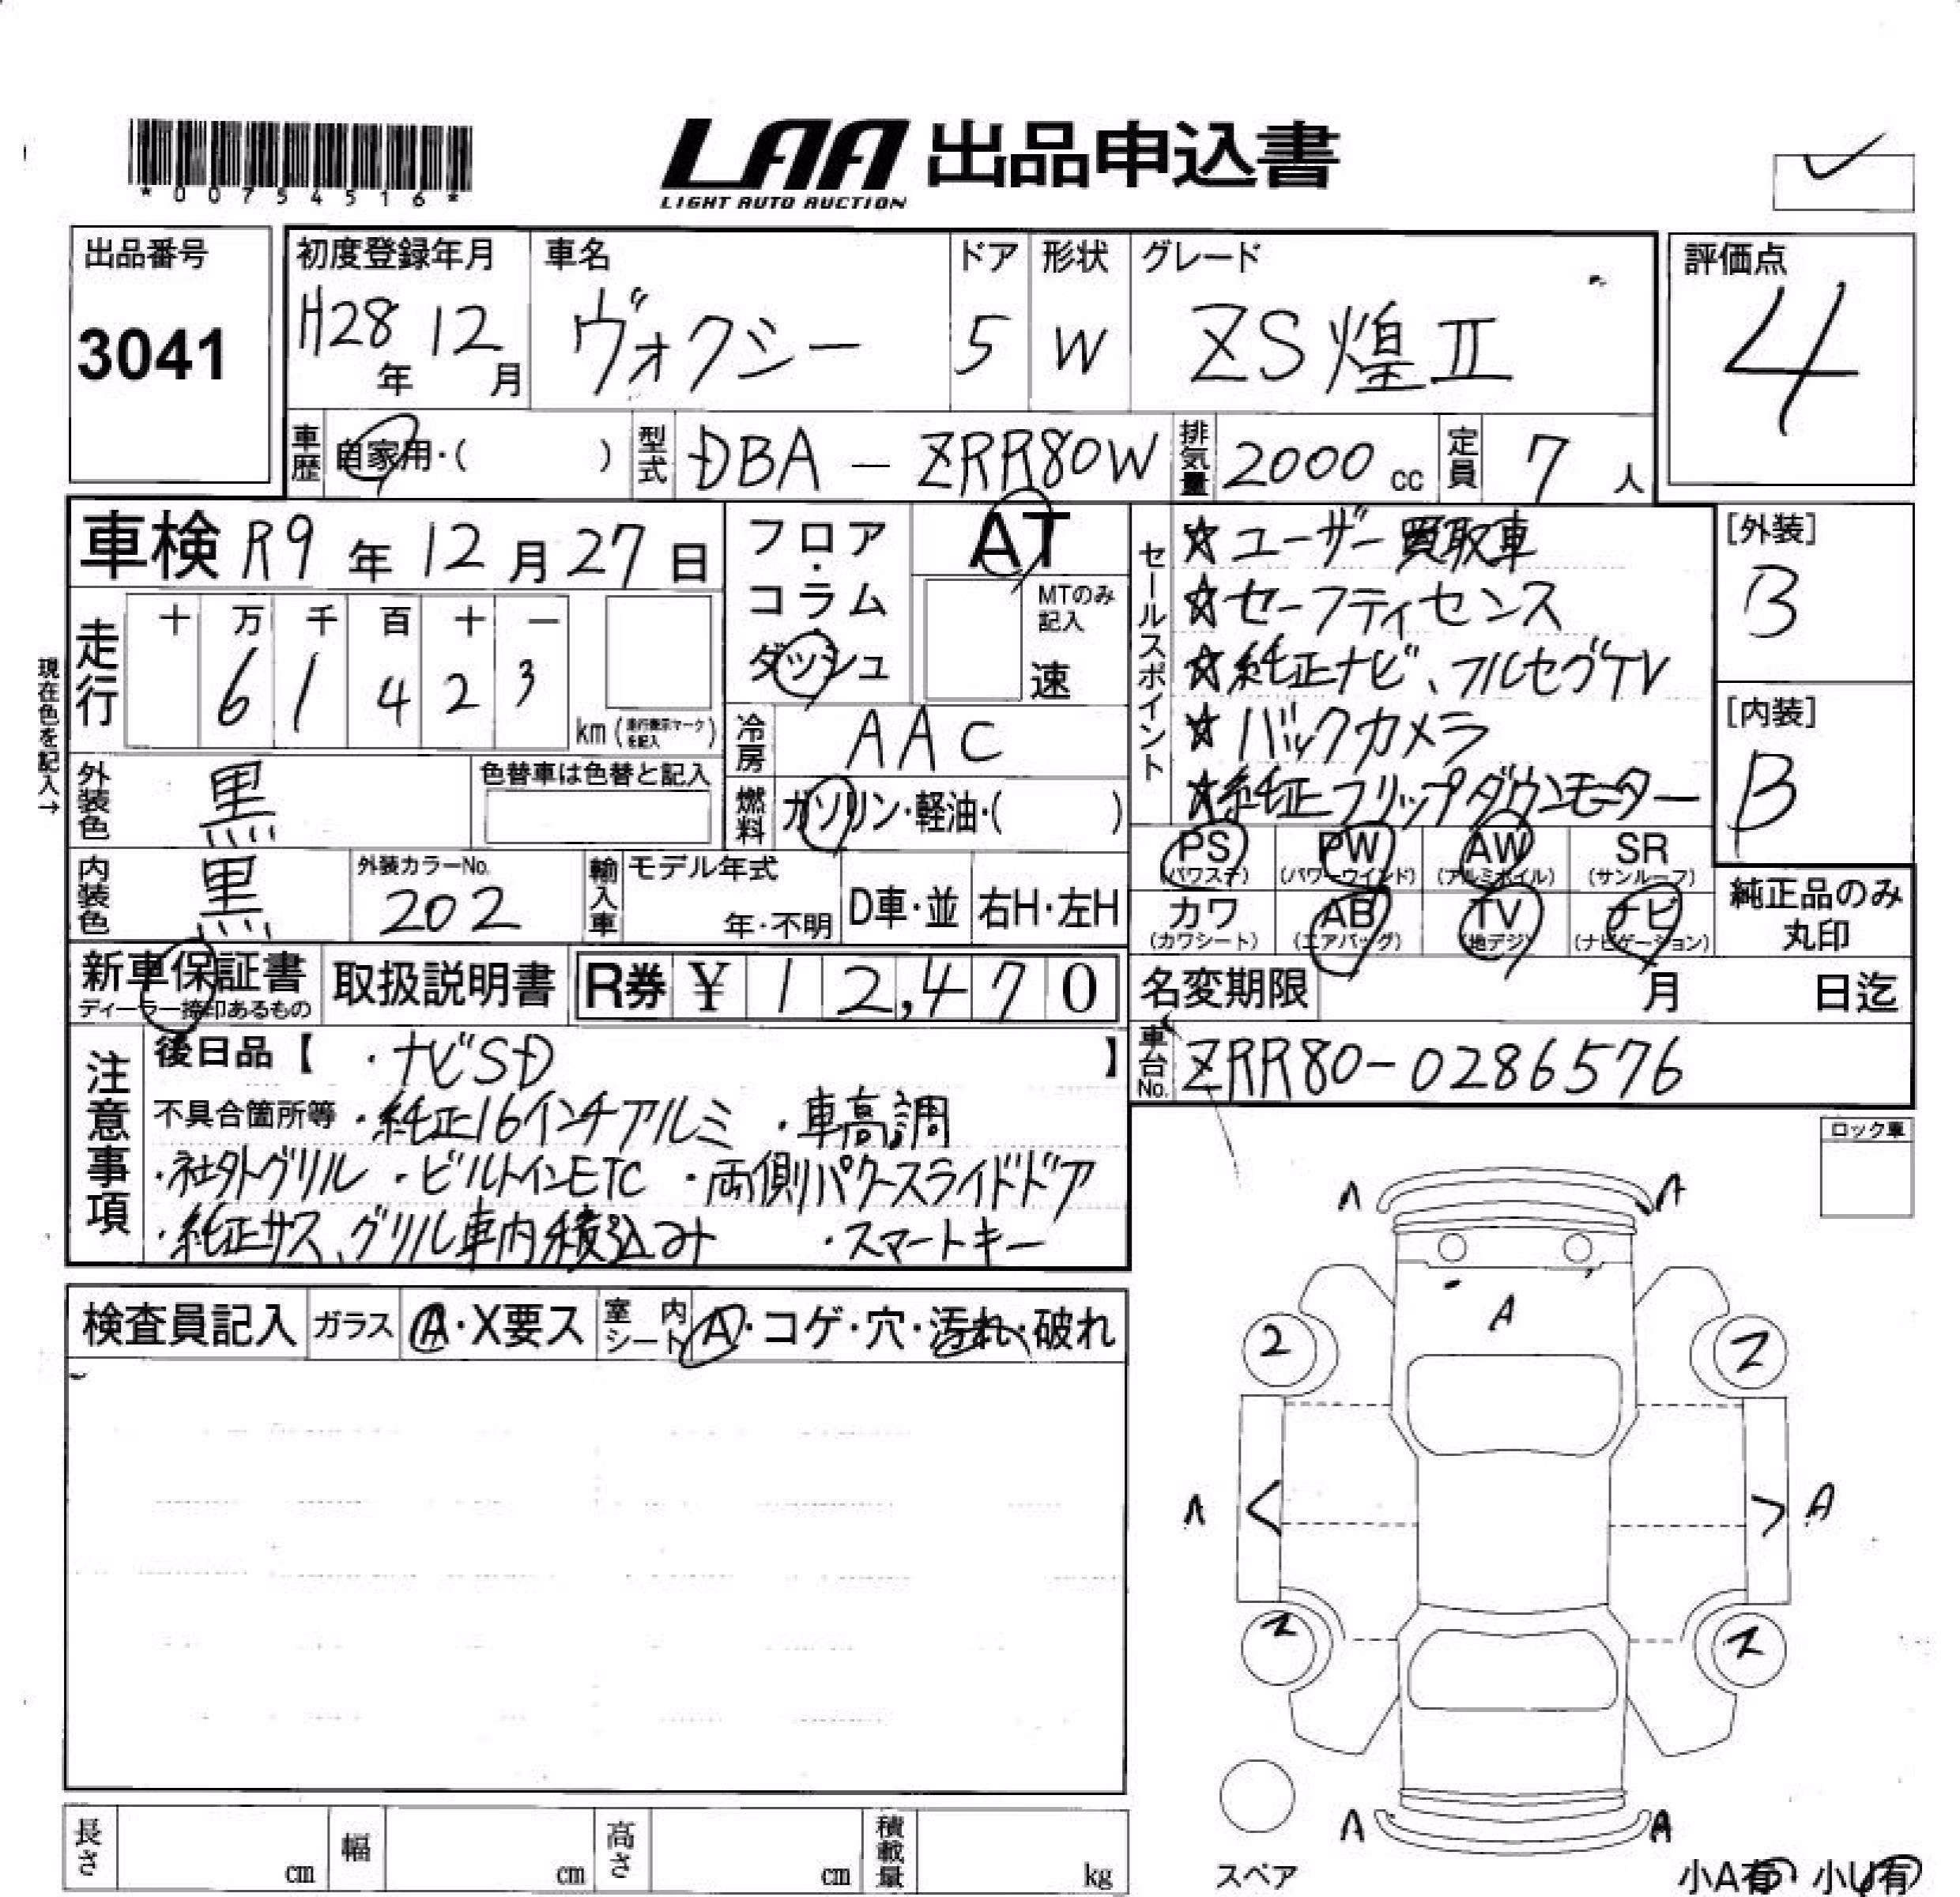 *00754516*
LAA 出品申込書
LIGHT AUTO AUCTION
出品番号
3041
初度登録年月
H28年 12月
車名
ヴォクシー
ドア
5
形状
W
グレード
ZS煌Ⅱ
評価点
4
車歴 自家用・( )
型式 DBA － ZRR80W
排気量 2000 cc
定員 7 人
車検 R9年 12月 27日
フロア・コラム・ダッシュ
AT
MTのみ記入
速
現在色を記入→
走行
十 万 千 百 十 一
6 1 4 2 3
km(走行表示マークを記入)
冷房 AAC
外装色 黒
色替車は色替と記入
燃料 ガソリン・軽油・( )
内装色 黒
外装カラーNo.
202
輸入車 モデル年式
年・不明
D車・並
右H・左H
セールスポイント
☆ユーザー買取車
☆セーフティセンス
☆純正ナビ、フルセグTV
☆バックカメラ
☆純正フリップダウンモニター
[外装]
B
[内装]
B
PS (パワステ)
PW (パワーウインド)
AW (アルミホイル)
SR (サンルーフ)
カワ (カワシート)
AB (エアバッグ)
TV (地デジ)
ナビ (ナビゲーション)
純正品のみ丸印
新車保証書
ディーラー捺印あるもの
取扱説明書
R券 ¥ 12,470
名変期限 月 日迄
車台No. ZRR80-0286576
注意事項
後日品【 ・ナビSD 】
不具合箇所等 ・純正16インチアルミ ・車高調
・社外グリル ・ビルトインETC ・両側パワースライドドア
・純正サス、グリル車内積込み ・スマートキー
ロック車
検査員記入
ガラス A・X要ス
室内シート A・コゲ・穴・汚れ・破れ
A A
A
2 2
A < > A
2 2
A A
スペア
小A有・小U有
長さ cm
幅 cm
高さ cm
積載量 kg